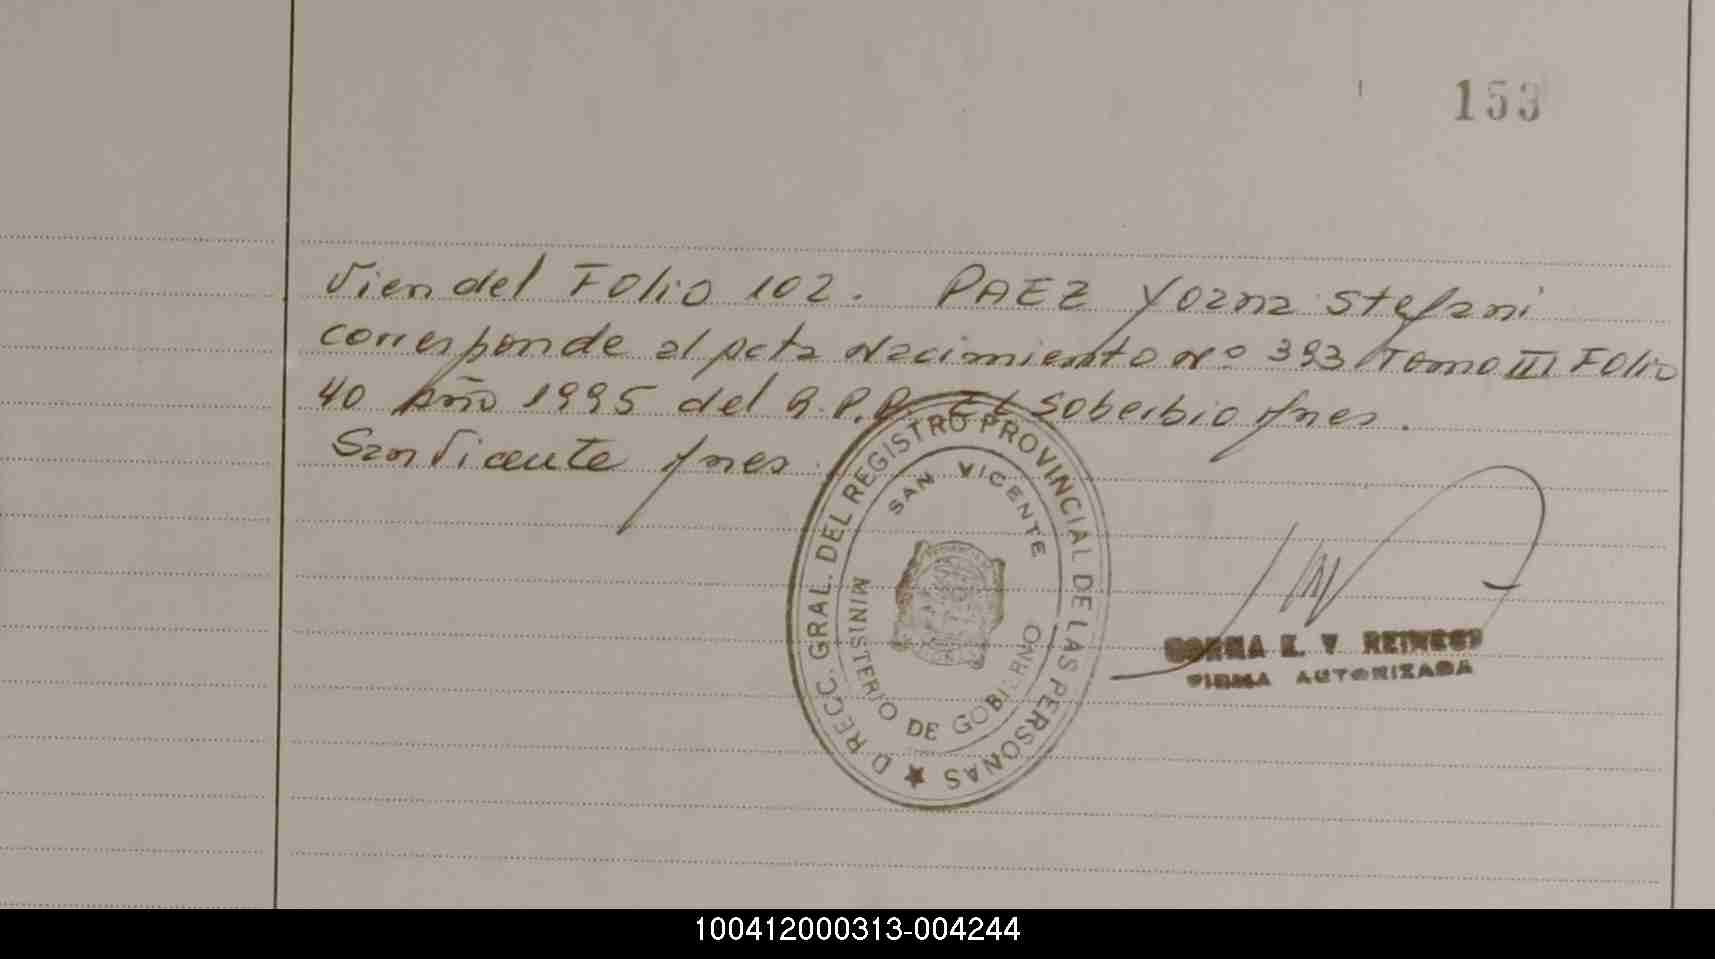 153
Vien del Folio 102. PAEZ Yoana Stefani
corresponde al Acta Nacimiento Nº 393 Tomo III Folio
40 Año 1995 del R.P.P. El Soberbio Mnes.
San Vicente Mnes.
DRECC. GRAL. DEL REGISTRO PROVINCIAL DE LAS PERSONAS
SAN VICENTE
MINISTERIO DE GOBIERNO
E. V. 
FIRMA AUTORIZADA
100412000313-004244